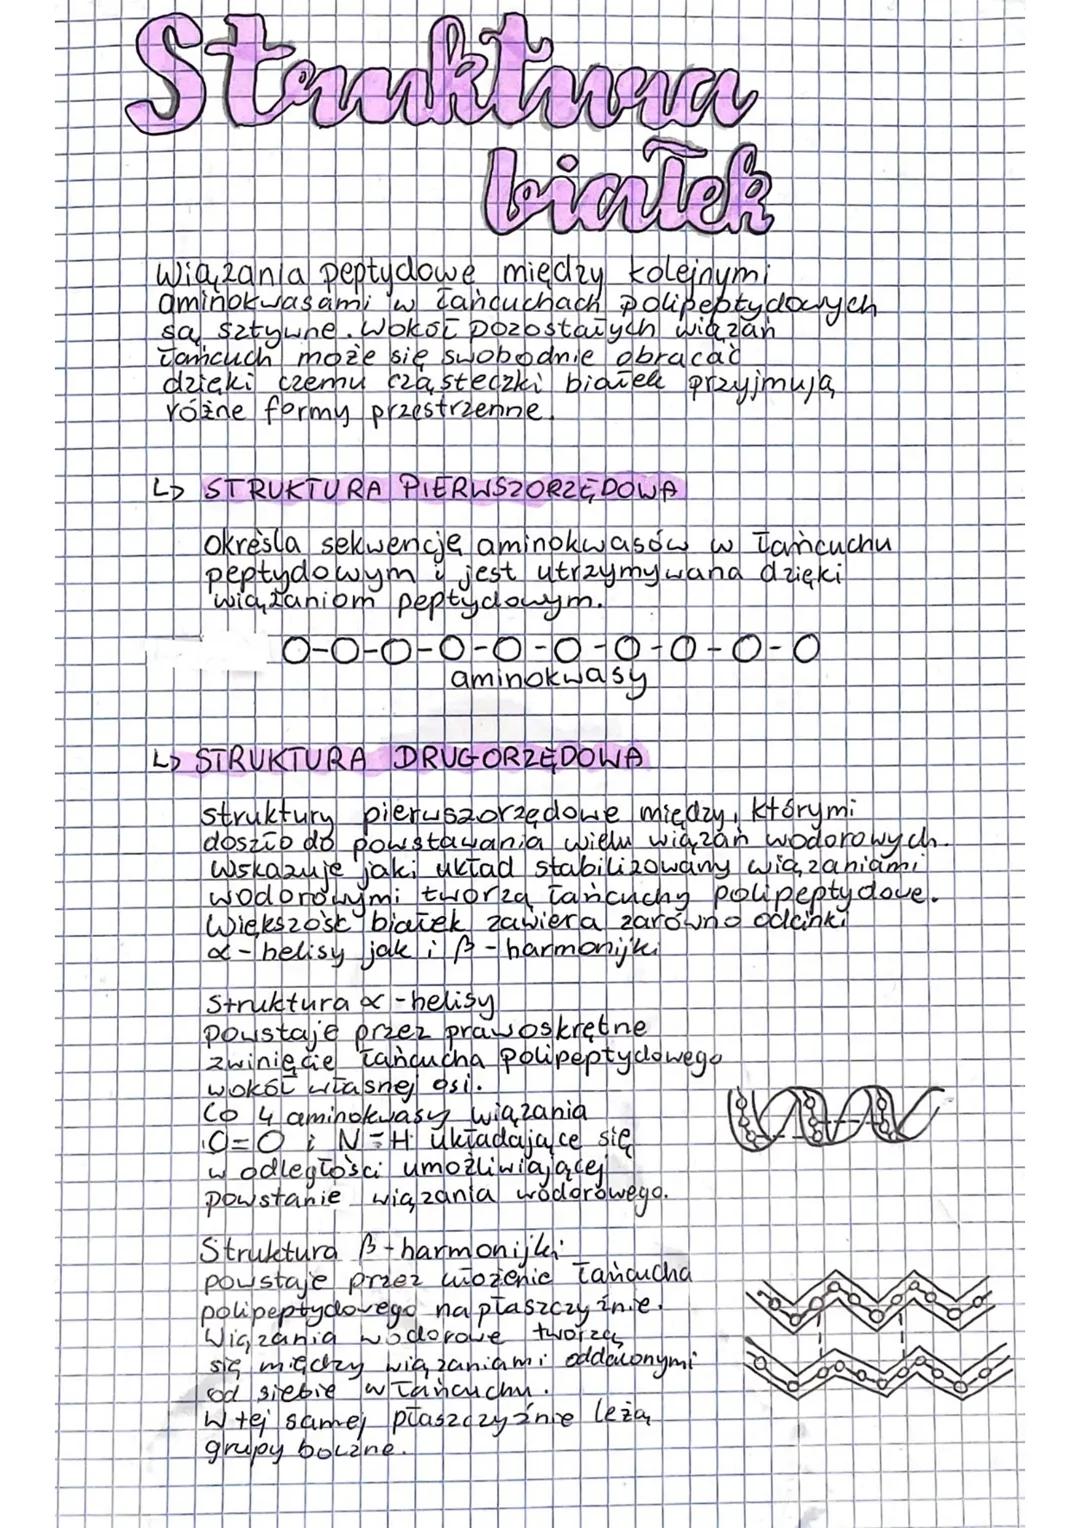 Struktura
białek
Wiązania peptydowe między kolejnymi
aminokwasami w łańcuchach polipeptydowych
są sztywne. Wokół pozostałych wiązań
łańcuch może się swobodnie obracać
dzięki czemu cząsteczki białek przyjmują
różne formy przestrzenne.
↳ STRUKTURA PIERWSZORZĘDOWA
określa sekwencję aminokwasów w łańcuchu
peptydowym i jest utrzymywana dzięki
wiązaniom peptydowym.
O-O-O-O-O-O-O-O-O-O
aminokwasy
↳ STRUKTURA DRUGORZĘDOWA
struktury pierwszorzędowe między którymi
doszło do powstawania wielu wiązań wodorowych.
Wskazuje jaki układ stabilizowany wiązaniami
wodorowymi tworzą łańcuchy polipeptydowe.
Większość białek zawiera zarówno odcinki
α-helisy jak i β-harmonijki
Struktura α-helisy
powstaje przez prawoskrętne
zwinięcie łańcucha polipeptydowego
wokół własnej osi.
Co 4 aminokwasy wiązania
C=O i N-H układające się
w odległości umożliwiającej
powstanie wiązania wodorowego.
Struktura β-harmonijki
powstaje przez ułożenie łańcucha
polipeptydowego na płaszczyźnie.
Wiązania wodorowe tworzą
się między wiązaniami oddalonymi
od siebie w łańcuchu.
W tej samej płaszczyźnie leżą
grupy boczne.